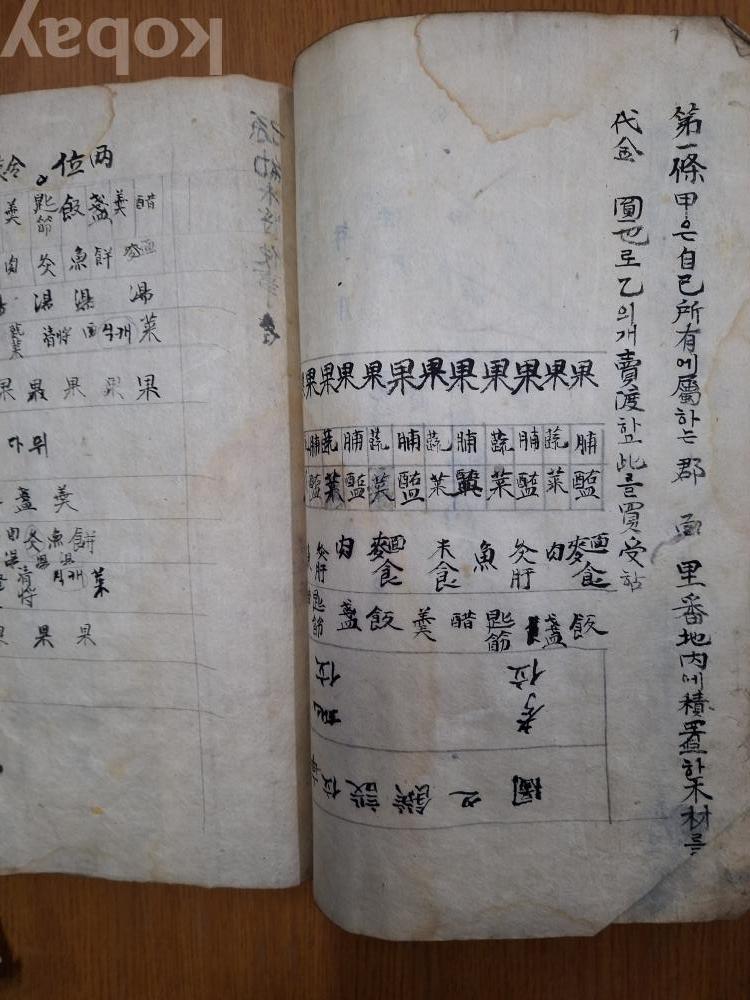 第一條甲은自己所有에屬하는郡 面 里番地內에積置한木材를
代金 圓也로乙의게賣渡하고此를買受
果果果果果果果果果果果
脯蔬脯蔬脯蔬脯蔬脯蔬脯
醢菜醢菜醢菜醢菜醢菜醢
炙肝 肉 麵食 米食 魚 炙肝 肉 麵食
匙筯 盞 飯 羹 醋 匙筯 盞 飯
位 考位
位設饌之圖
兩位
羹 匙筯 飯 盞 羹 醋
肉 炙 魚 餅 麵
湯 湯 湯
菜 清醬 식캐 菜
果 果 果 果 果
다위
盞 羹
肉 炙 魚 餅
湯 湯 湯
清醬 식캐 菜
果 果 果
kobay